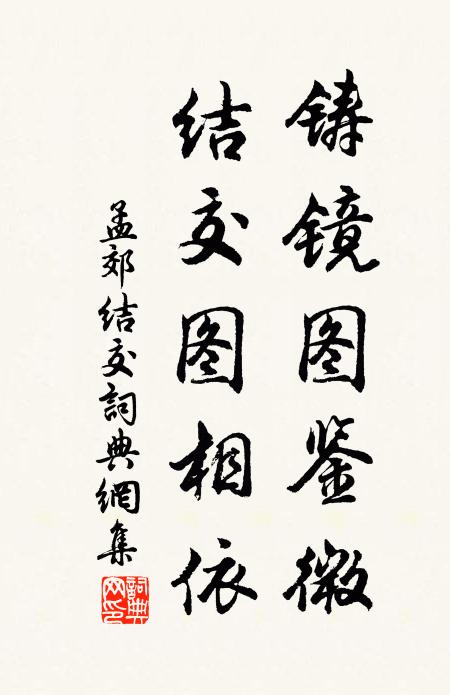 铸镜图鉴微
结交图相依
孟郊结交詞典網集
詞典网印